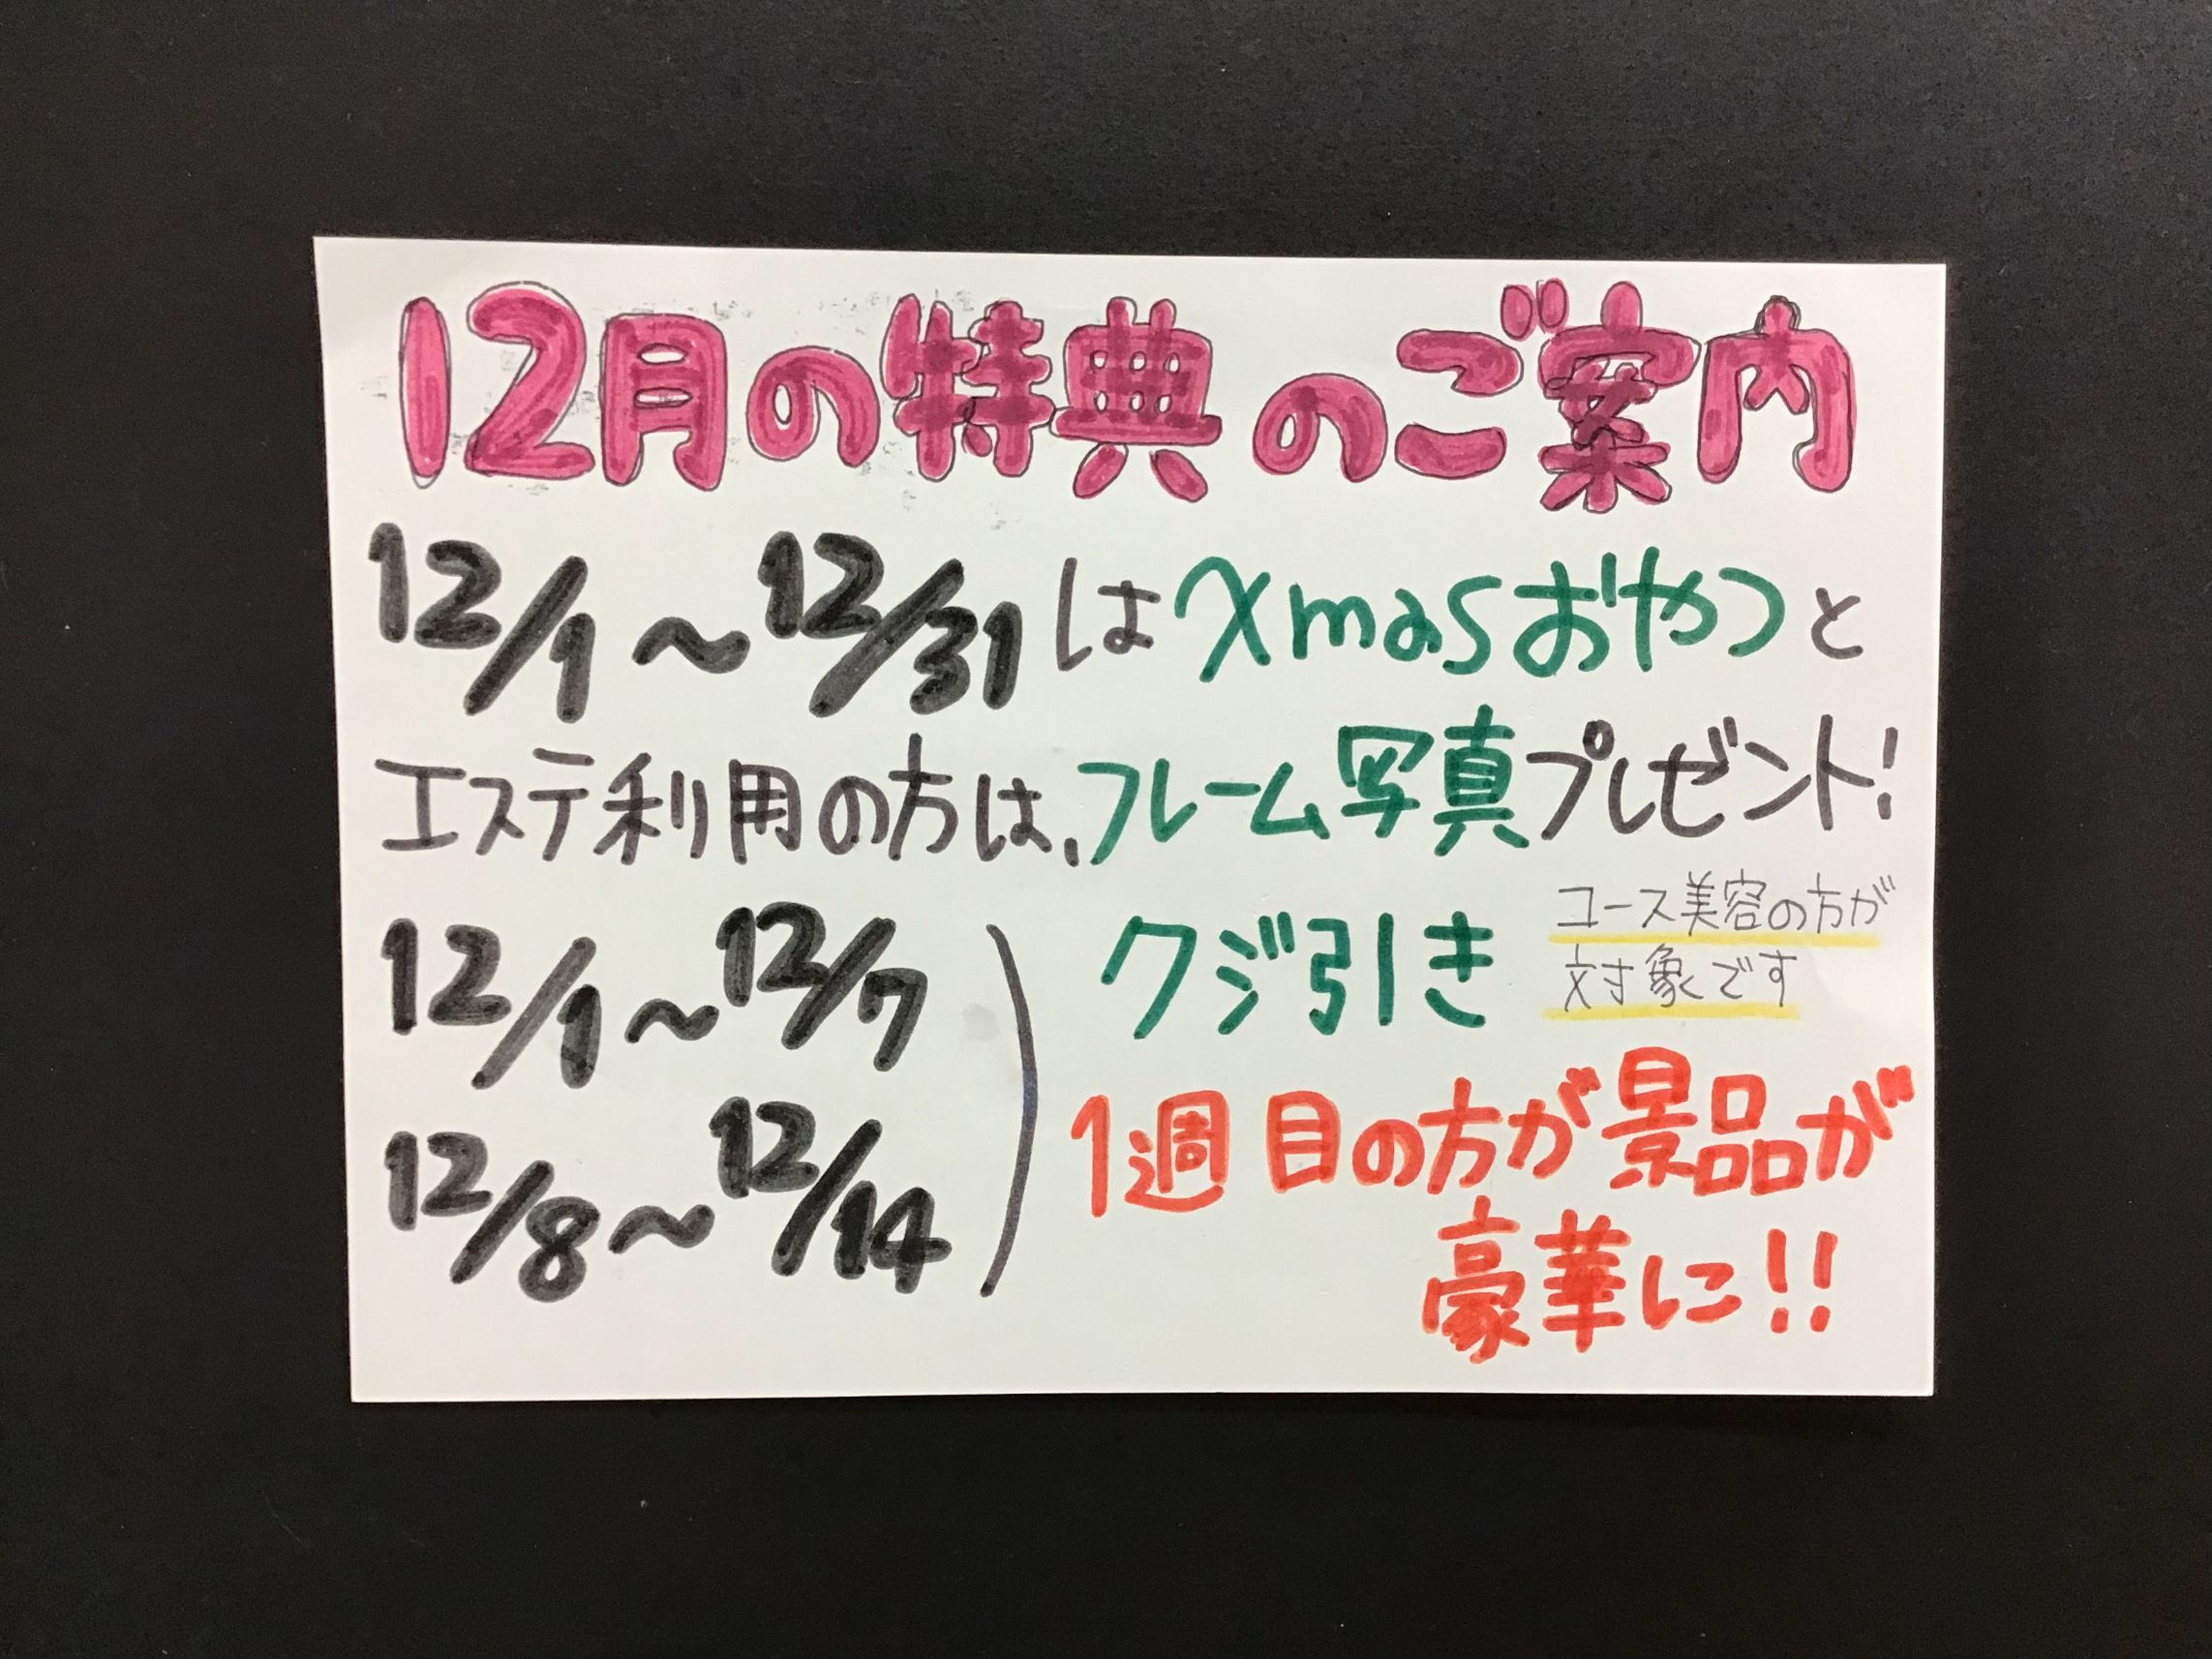 12月の特典のご案内
12/1〜12/31はXmasおやつと
エステ利用の方は、フレーム写真プレゼント!
12/1〜12/7
12/8〜12/14
クジ引き
コース美容の方が
対象です
1週目の方が景品が
豪華に!!